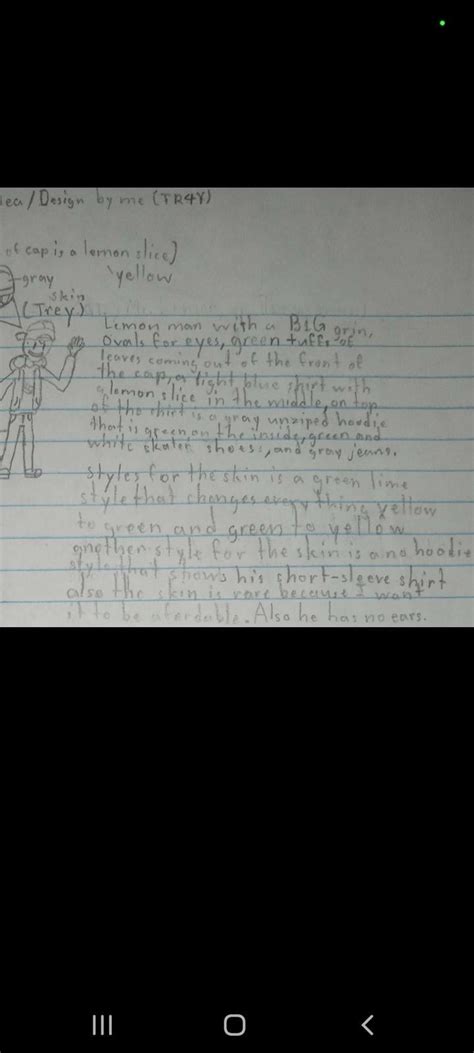 dea/Design by me (TR4Y)
of cap is a lemon slice]
gray
yellow
skin
(Trey)
Limon man with a BIG grin,
Ovals for eyes, green tuffs of
leaves coming out of the front of
the cap, a light blue shirt with
a lemon slice in the middle, on top
of the shirt is a gray unziped hoodie
that is green on the inside, green and
white skater shoes, and gray jeans.
Styles for the skin is a green lime
style that changes everything yellow
to green and green to yellow
another style for the skin is a no hoodie
style that shows his short-sleeve shirt
also the skin is rare because I want
it to be afordable. Also he has no ears.